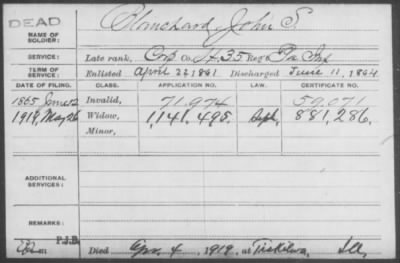 DEAD
NAME OF SOLDIER: Blanchard, John S.
SERVICE: Late rank, Corp Co. H, 35 Reg't Pa Inf
TERM OF SERVICE: Enlisted April 22, 1861 Discharged June 11, 1864
DATE OF FILING. CLASS. APPLICATION NO. LAW. CERTIFICATE NO.
1865 June 12 Invalid, 71,974 59,071
1919, May 26 Widow, 1,141,495, Sept, 881,286,
Minor,
ADDITIONAL SERVICES:
REMARKS:
P.I.B.
Died Apr. 4, 1919, at Tiskilwa, Ill,